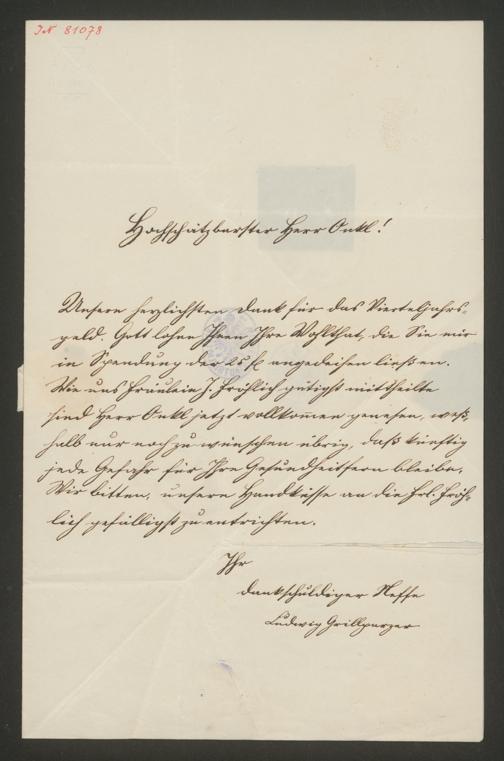 JN 81078
Hochschätzbarster Herr Onkl!
Unsern herzlichsten Dank für das Vierteljahrs-
geld. Gott lohne Ihnen Ihre Wohlthat, die Sie mir
in Spendung der 25 fl angedeihen ließen.
Wie uns Fräulein J. Fröhlich gütigst mittheilte
sind Herr Onkl jetzt vollkommen genesen, weß-
halb nur noch zu wünschen übrig, daß künftig
jede Gefahr für Ihre Gesundheit fern bleibe.
Wir bitten, unsere Handküsse an die Frl. Fröh-
lich gefälligst zu entrichten.
Ihr
dankschuldiger Neffe
Ludwig Grillparzer